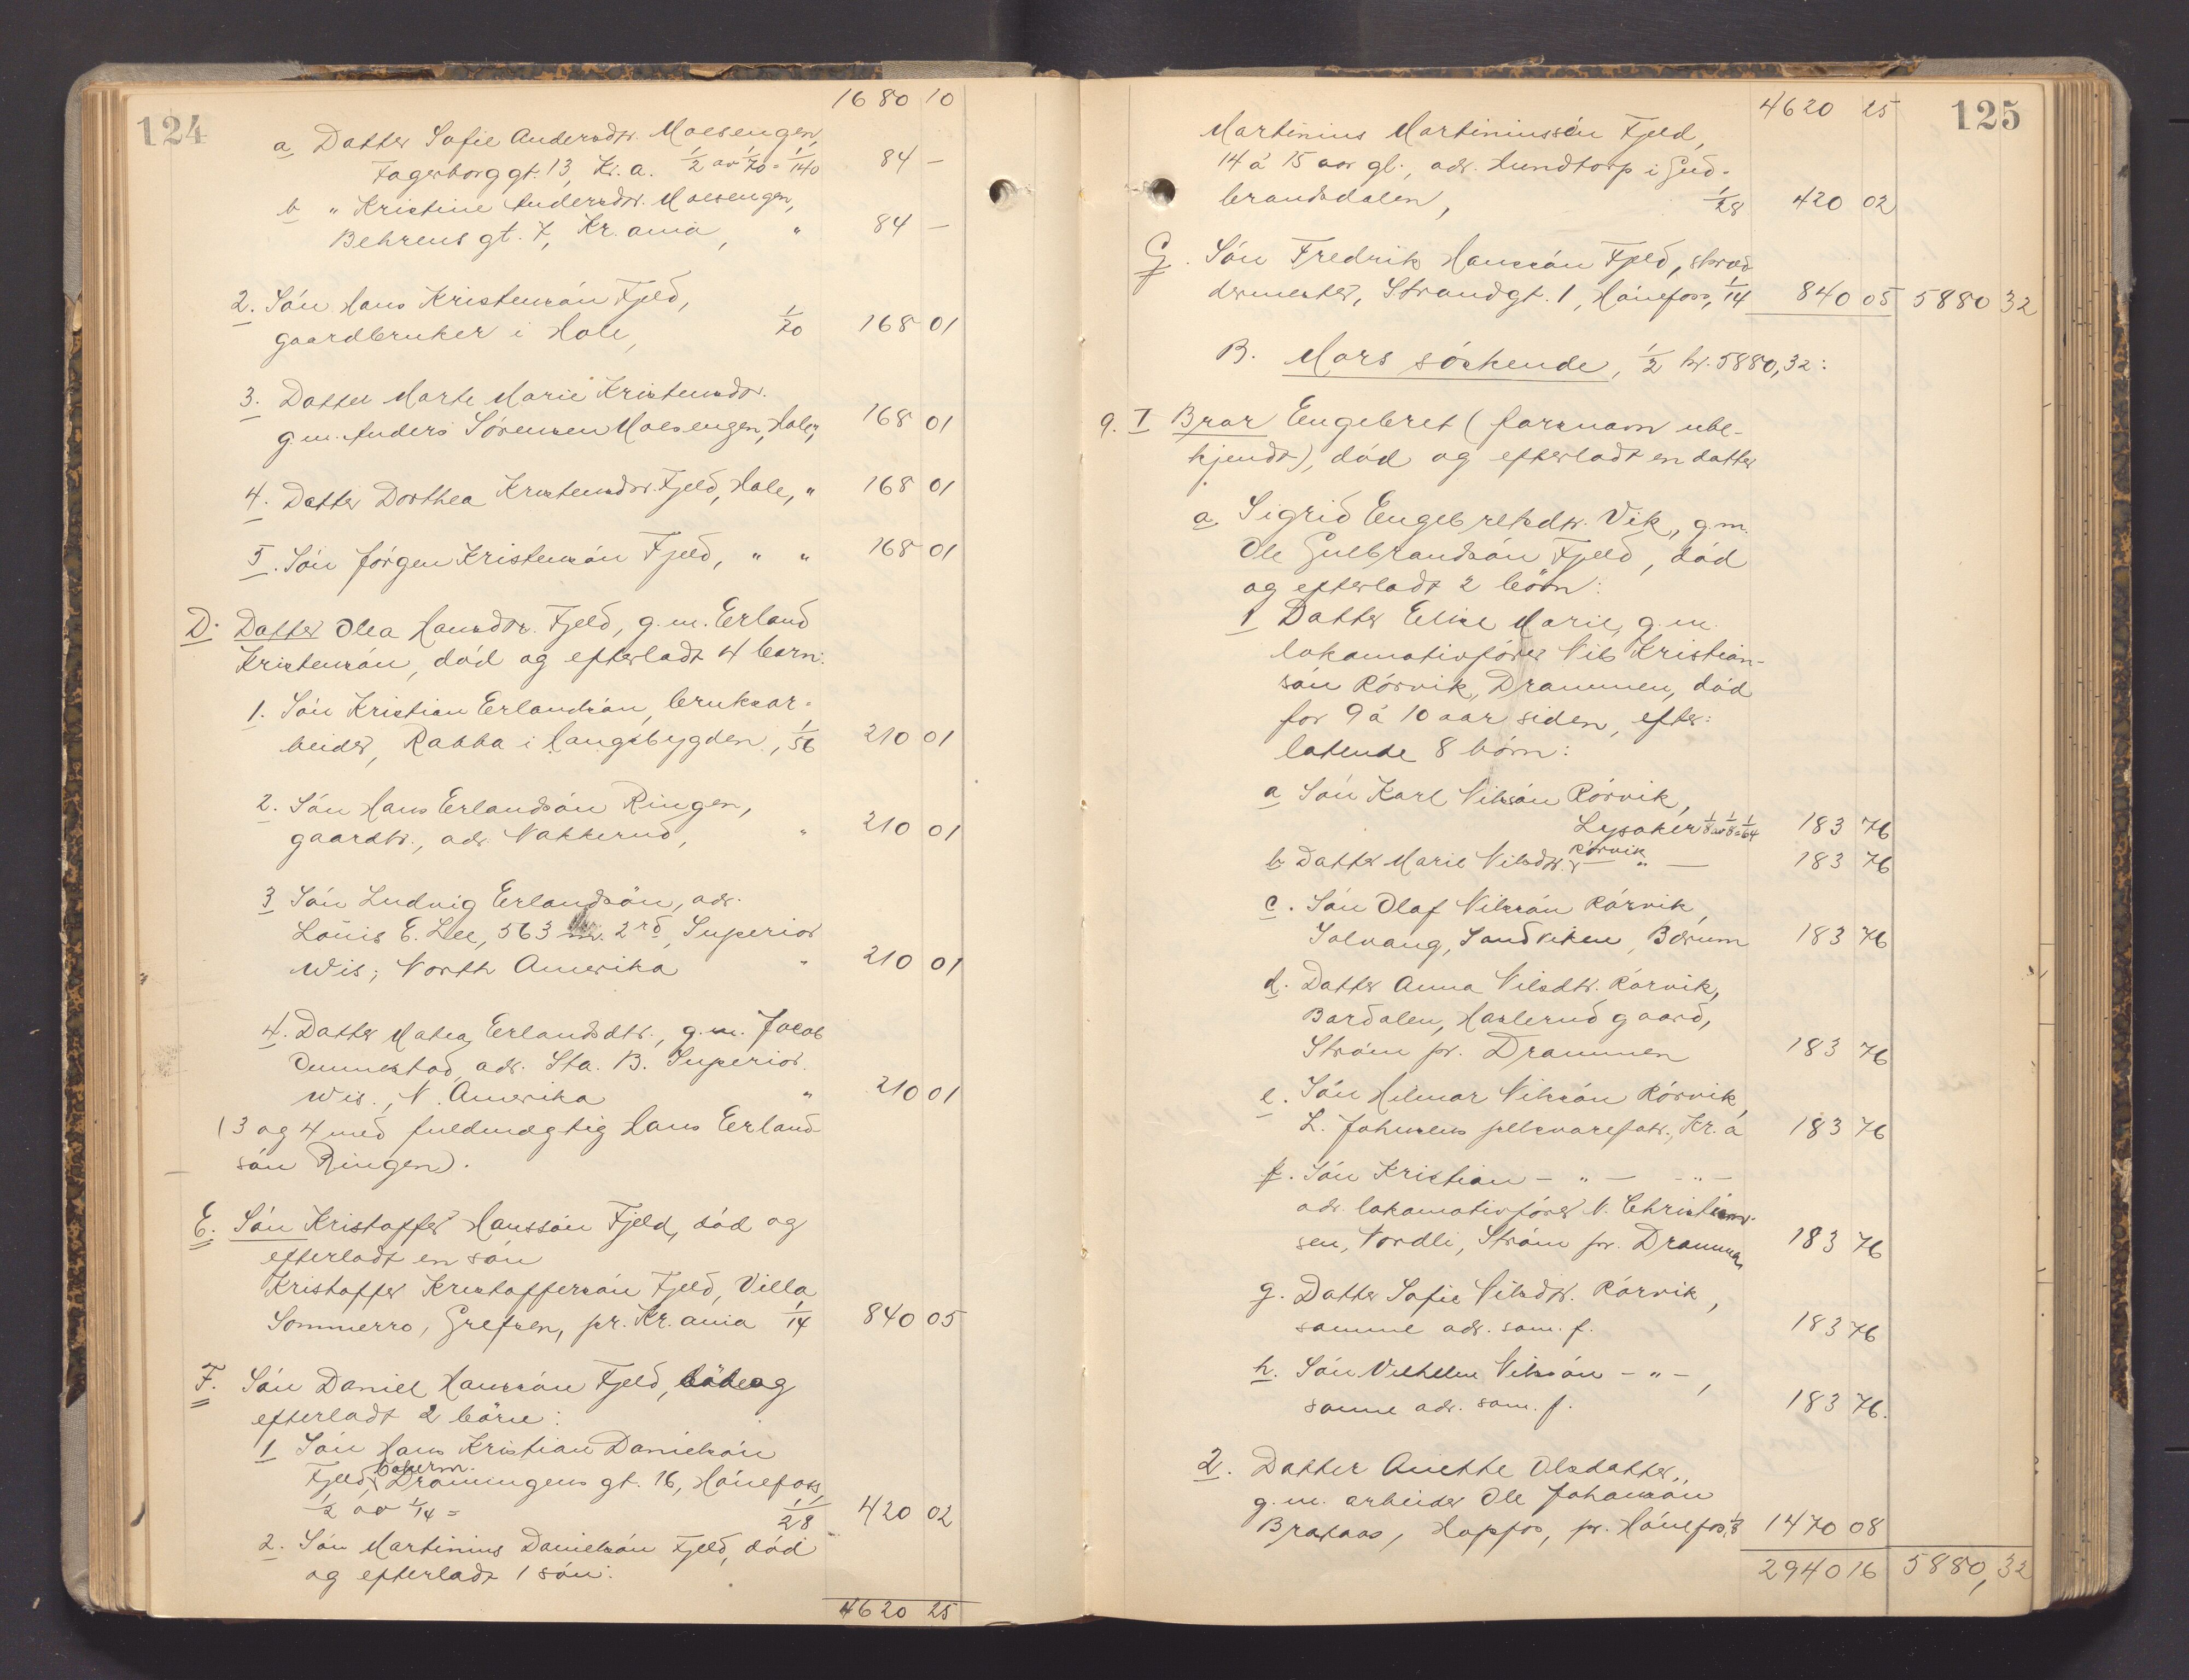 124
1680 10
a Datter Sofie Andersdtr. Moesengen,
Fagerborggt. 13, Kr.a. 1/2 av 1/70 = 1/140 84 —
b " Kristine Andersdtr. Moesengen,
Behrens gt. 7, Kr.ania, " 84 —
2. Sön Hans Kristensön Fjeld,
gaardbruker i Hole, 1/70 168 01
3. Datter Marte Marie Kristensdtr.
g.m. Anders Sörensen Moesengen, Hole, " 168 01
4. Datter Dorthea Kristensdtr. Fjeld, Hole, " 168 01
5. Sön Jörgen Kristensön Fjeld, " " 168 01
D. Datter Olea Hansdtr. Fjeld, g.m. Erland
Kristensön, död og efterladt 4 barn:
1. Sön Kristian Erlandsön, bruksar-
beider, Rabba i Haugsbygden, 1/56 210 01
2. Sön Hans Erlandsön Ringen,
gaardbr., adr. Nakkerud, " 210 01
3 Sön Ludvig Erlandsön, adr.
Louis E. Lee, 563 2rd, Superior
Wis; North Amerika " 210 01
4. Datter Matea Erlandsdtr., g.m. Jacob
adr. Sta. B. Superior.
Wis., N. Amerika " 210 01
(3 og 4 med fuldmægtig Hans Erland-
sön Ringen).
E. Sön Kristoffer Hanssön Fjeld, död og
efterladt en sön
Kristoffer Kristoffersön Fjeld, Villa
Sommerro, Grefsen, pr. Kr.ania 1/14 840 05
F. Sön Daniel Hanssön Fjeld, död og
efterladt 2 börn:
1 Sön Hans Kristian Danielsön
Fjeld, bakerm. Dronningens gt. 16, Hönefoss,
1/2 av 1/14 = 1/28 420 02
2. Sön Martinius Danielsön Fjeld, död
og efterladt 1 sön:
4620 25
125
4620 25
Martinius Martiniussön Fjeld,
14 á 15 aar gl., adr. Hundtorp i Gud-
brandsdalen, 1/28 420 02
G. Sön Fredrik Hanssön Fjeld, skræd-
dermester, Strandgt. 1, Hönefoss, 1/14 840 05 5880 32
B. Mors söskende, 1/2 kr. 5880,32:
9. I Bror Engebret (farsnavn ube-
kjendt), död og efterladt en datter
a. Sigrid Engebretsdtr. Vik, g.m.
Ole Gulbrandsön Fjeld, död
og efterladt 2 börn:
1 Datter Elise Marie, g.m.
lokomotivförer Nils Kristian-
sön Rörvik, Drammen, död
for 9 á 10 aar siden, efter-
latende 8 börn:
a Sön Karl Nilssön Rörvik,
Lysaker 1/8 av 1/8 = 1/64 183 76
b Datter Marie Nilsdtr. Rörvik — " — 183 76
c. Sön Olaf Nilssön Rörvik,
Solvang, Sandviken, Bærum 183 76
d. Datter Anna Nilsdtr. Rörvik,
Bardalen, Haslerud gaard,
Ström pr. Drammen 183 76
e. Sön Hilmar Nilssön Rörvik,
L. Johnsens pelsvareforr., Kr.a 183 76
f. Sön Kristian — " — — " —
adr. lokomotivförer N. Christian-
sen, Nordli, Ström pr. Drammen 183 76
g. Datter Sofie Nilsdtr. Rörvik,
samme adr. som f. 183 76
h. Sön Vilhelm Nilssön — " —,
samme adr. som f. 183 76.
2. Datter Anette Olsdatter,
g.m. arbeider Ole Johansön
Braxaas, Hofsfos, pr. Hönefos, 1/8 1470 08
2940 16 5880,32